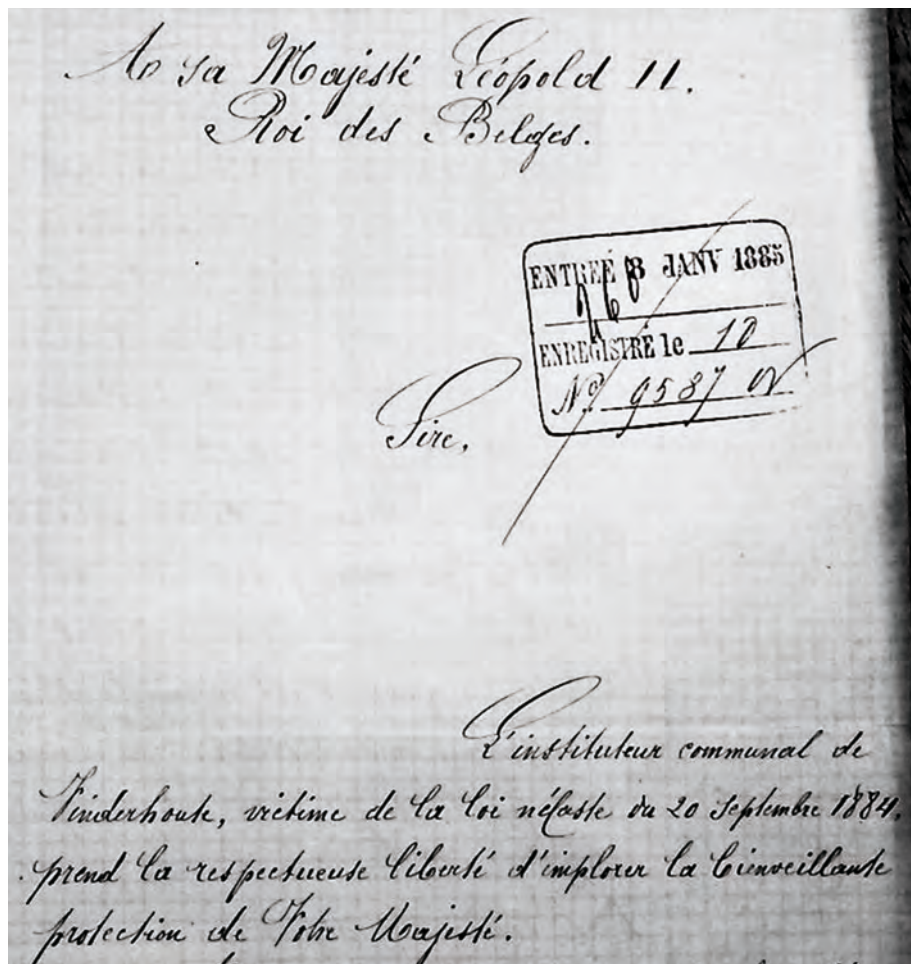 A sa Majesté Léopold II.
Roi des Belges.
ENTREÉ 8 JANV 1885
ENREGISTRÉ le 10
No 9587
Sire,
L'instituteur communal de
Vinderhoute, victime de la loi néfaste du 20 Septembre 1884,
prend la respectueuse liberté d'implorer la bienveillante
protection de Votre Majesté.